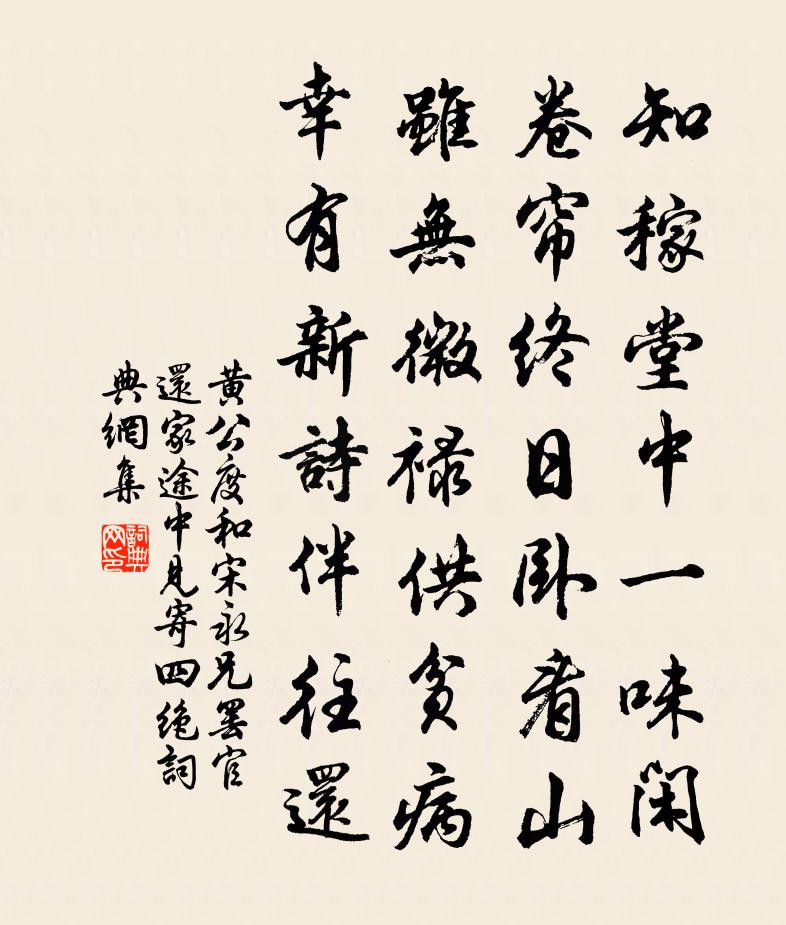 知稼堂中一味閑
卷帘終日卧看山
雖無微禄供貧病
幸有新詩伴往還
黄公度和宋永兄罢官
還家途中見寄四絶詞
典網集
詞典網印